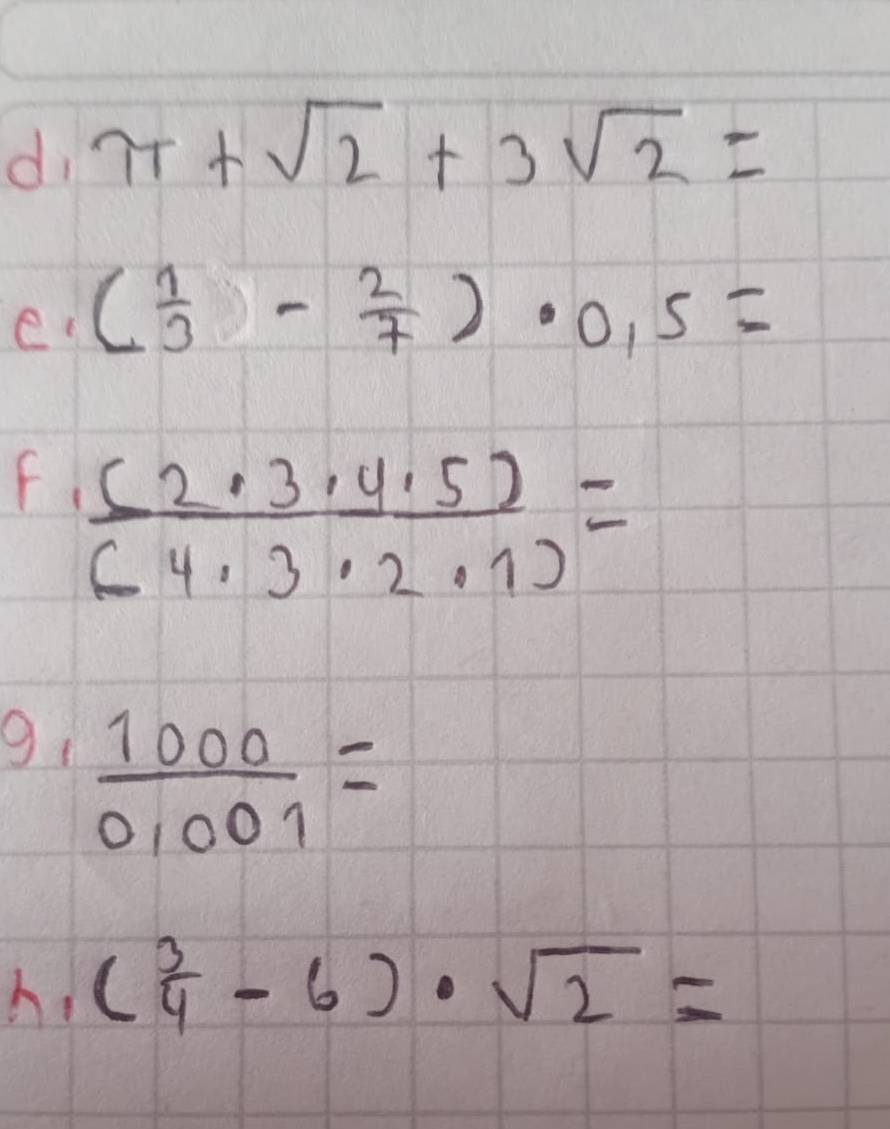 d. π + √2 + 3√2 =
e. (1/3 - 2/7) · 0,5 =
f. (2·3·4·5)/(4·3·2·1) =
g. 1000/0,001 =
h. (3/4 - 6) · √2 =